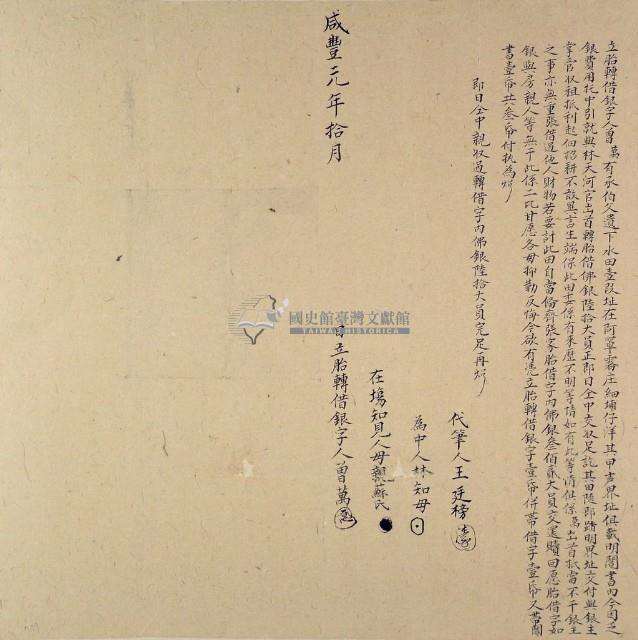 立胎轉借銀字人曾萬有承伯父遺下水田壹段址在阿罩霧庄細埔仔洋其甲声界址俱載明鬮書內今因乏
銀費用托中引就與林天河官出首轉胎借佛銀陸拾大員正即日仝中交收足訖其田隨即踏明界址交付與銀主
掌管收租抵利起佃招耕不敢異言生端保此田委係有來歷不明等情如有此等情俱係萬出首抵當不干銀主
之事亦無重張借過他人財物若要討此田自當俻齊張家胎借字內佛銀叁佰貳大員交還贖回愿胎借字如
銀與房親人等無干此係二比甘愿各毋抑勒反悔今欲有憑立胎轉借銀字壹帋併帶借字壹帋又帶鬮
書壹帋共叁帋付执為炤
即日仝中親收過轉借字內佛銀陸拾大員完足再炤
代筆人王廷榜
為中人林知母
在塲知見人母親蘇氏
日立胎轉借銀字人曾萬
咸豐元年拾月
國史館臺灣文獻館
TAIWAN HISTORICA